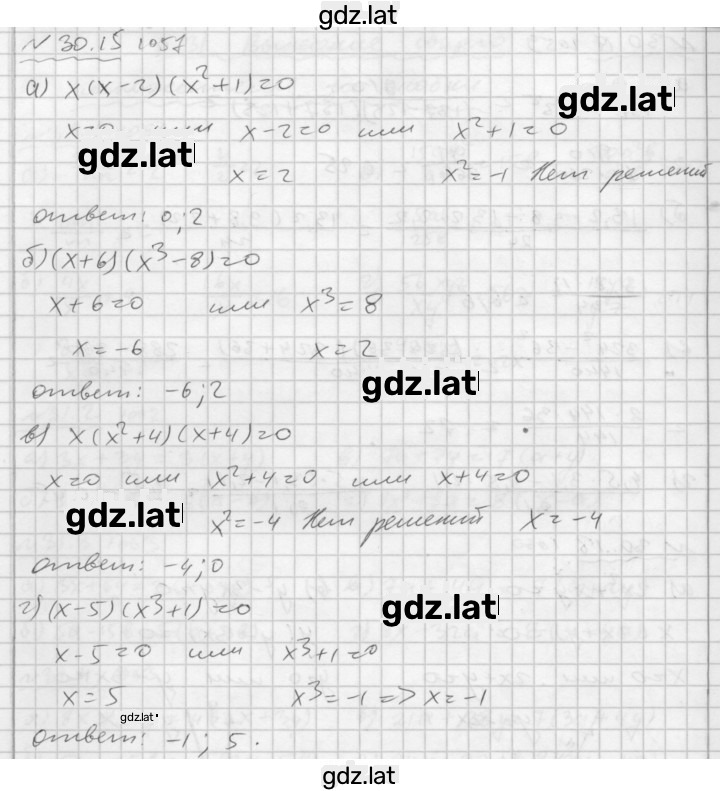 gdz.lat
№ 30.15 1057
а) x(x-2)(x²+1)=0
x=0 или x-2=0 или x²+1=0
gdz.lat
gdz.lat
x=2 x²=-1 Нет решений
ответ: 0;2
б) (x+6)(x³-8)=0
x+6=0 или x³=8
x=-6 x=2
gdz.lat
ответ: -6;2
в) x(x²+4)(x+4)=0
x=0 или x²+4=0 или x+4=0
gdz.lat x²=-4 Нет решений x=-4
ответ: -4;0
г) (x-5)(x³+1)=0
gdz.lat
x-5=0 или x³+1=0
x=5 x³=-1 => x=-1
gdz.lat
ответ: -1; 5.
gdz.lat